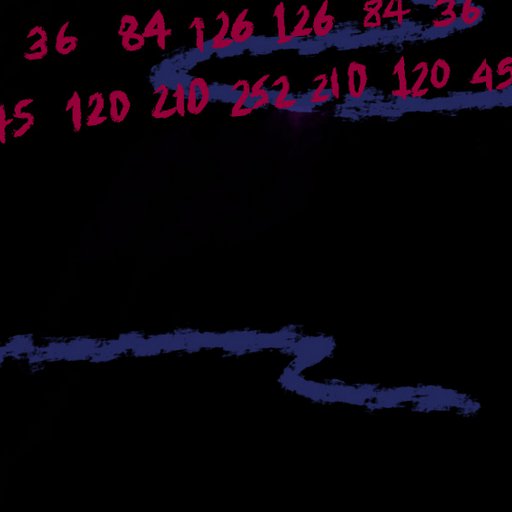 36 84 126 126 84 36
45 120 210 252 210 120 45